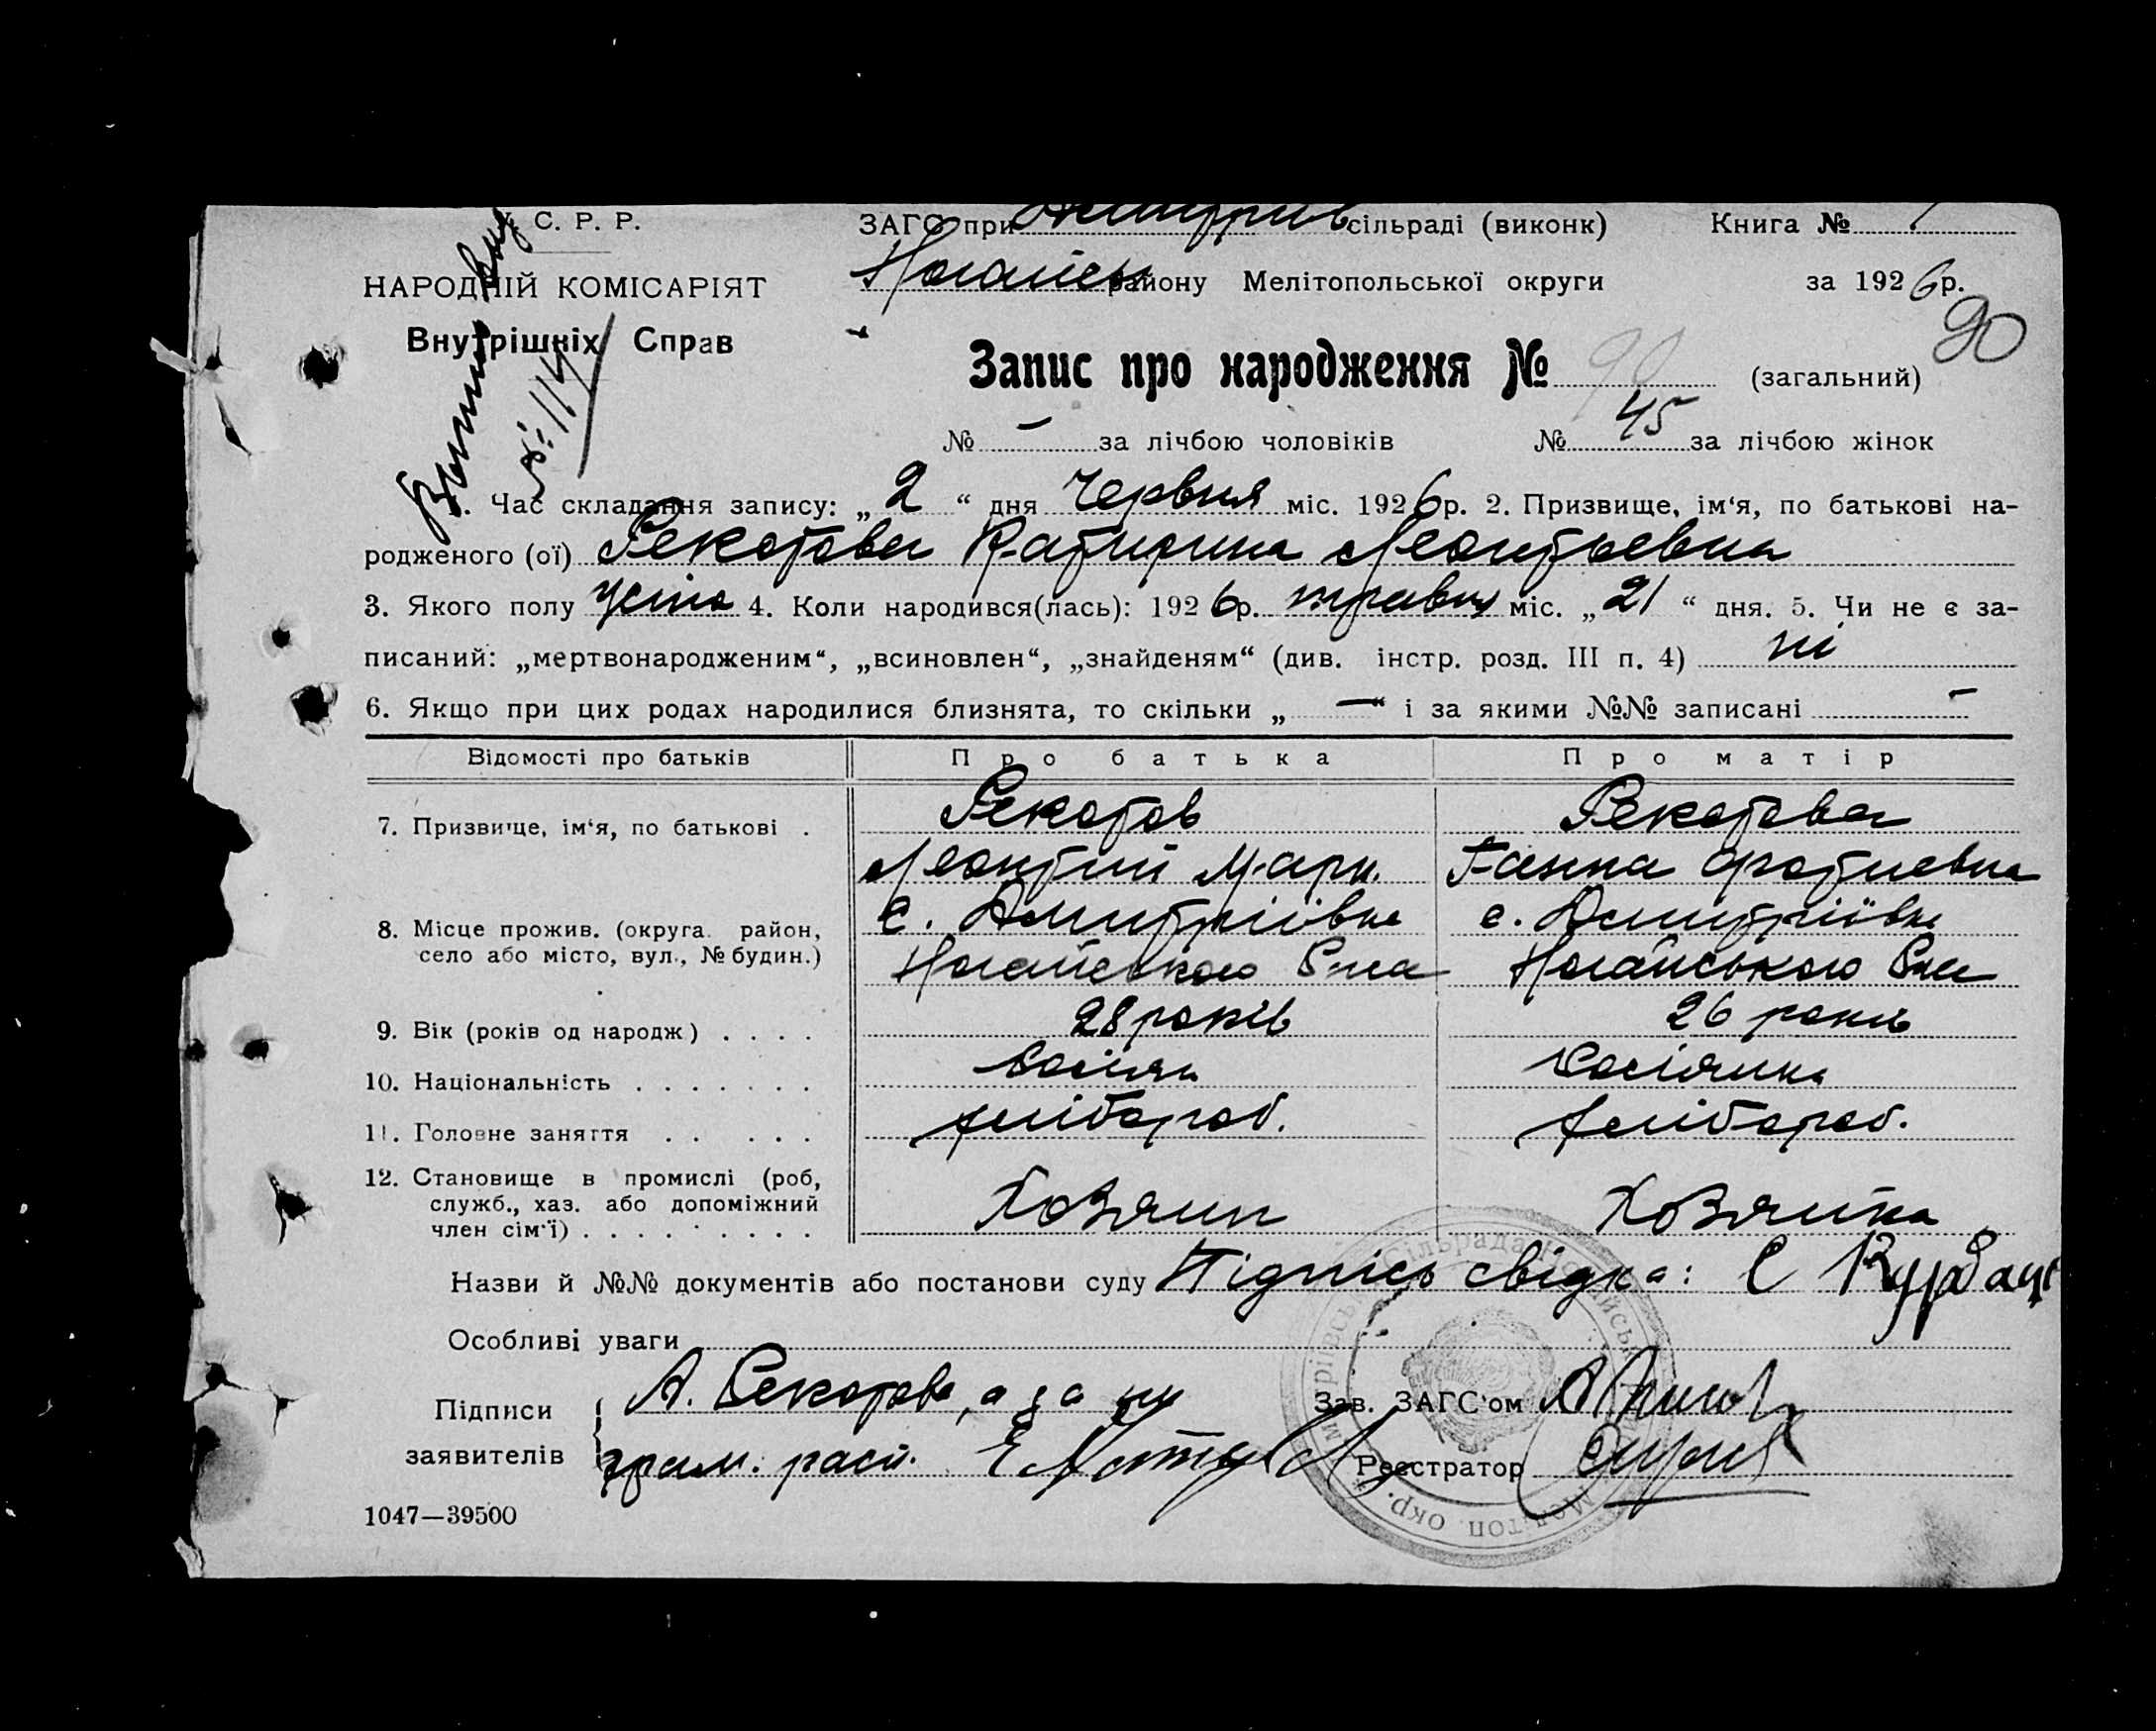 У. С. Р. Р.
НАРОДНІЙ КОМІСАРІЯТ
Внутрішніх Справ
№ 1114
ЗАГС при Дмитрів сільраді (виконк) Книга № 1
Ногайськ району Мелітопольської округи за 1926 р.
90
Запис про народження № 90 (загальний)
№ — за лічбою чоловіків № 45 за лічбою жінок
1. Час складання запису: „2“ дня Червня міс. 1926 р. 2. Призвище, ім'я, по батькові на-
родженого (ої) Рекотова Катирина Леонтьевна
3. Якого полу жіно 4. Коли народився(лась): 1926 р. травня міс. „21“ дня. 5. Чи не є за-
писаний: „мертвонародженим“, „всиновлен“, „знайденям“ (див. інстр. розд. III п. 4) ні
6. Якщо при цих родах народилися близнята, то скільки „—“ і за якими №№ записані —
Відомості про батьків Про батька Про матір
7. Призвище, ім'я, по батькові . Рекотов Рекотова
Леонтий Марк. Ганна Фотиевна
8. Місце прожив. (округа. район, с. Дмитріївка с. Дмитріївка
село або місто, вул., № будин.) Ногайського Р-на Ногайського Р-на
9. Вік (років од народж) . . . . 28 років 26 років
10. Національність . . . . . . . Росіян Росіянка
11. Головне заняття . . . . . хлібороб. хлібороб.
12. Становище в промислі (роб,
служб., хаз. або допоміжний Хозяин Хозяйка
член сім'ї) . . . . . . . . .
Назви й №№ документів або постанови суду Підпісь свідка: С Курбац
Особливі уваги
Підписи А. Рекотова, а за Зав. ЗАГС'ом
заявителів грам. расп. Реєстратор
1047—39500
Сільрада
Меліtоп. окр.